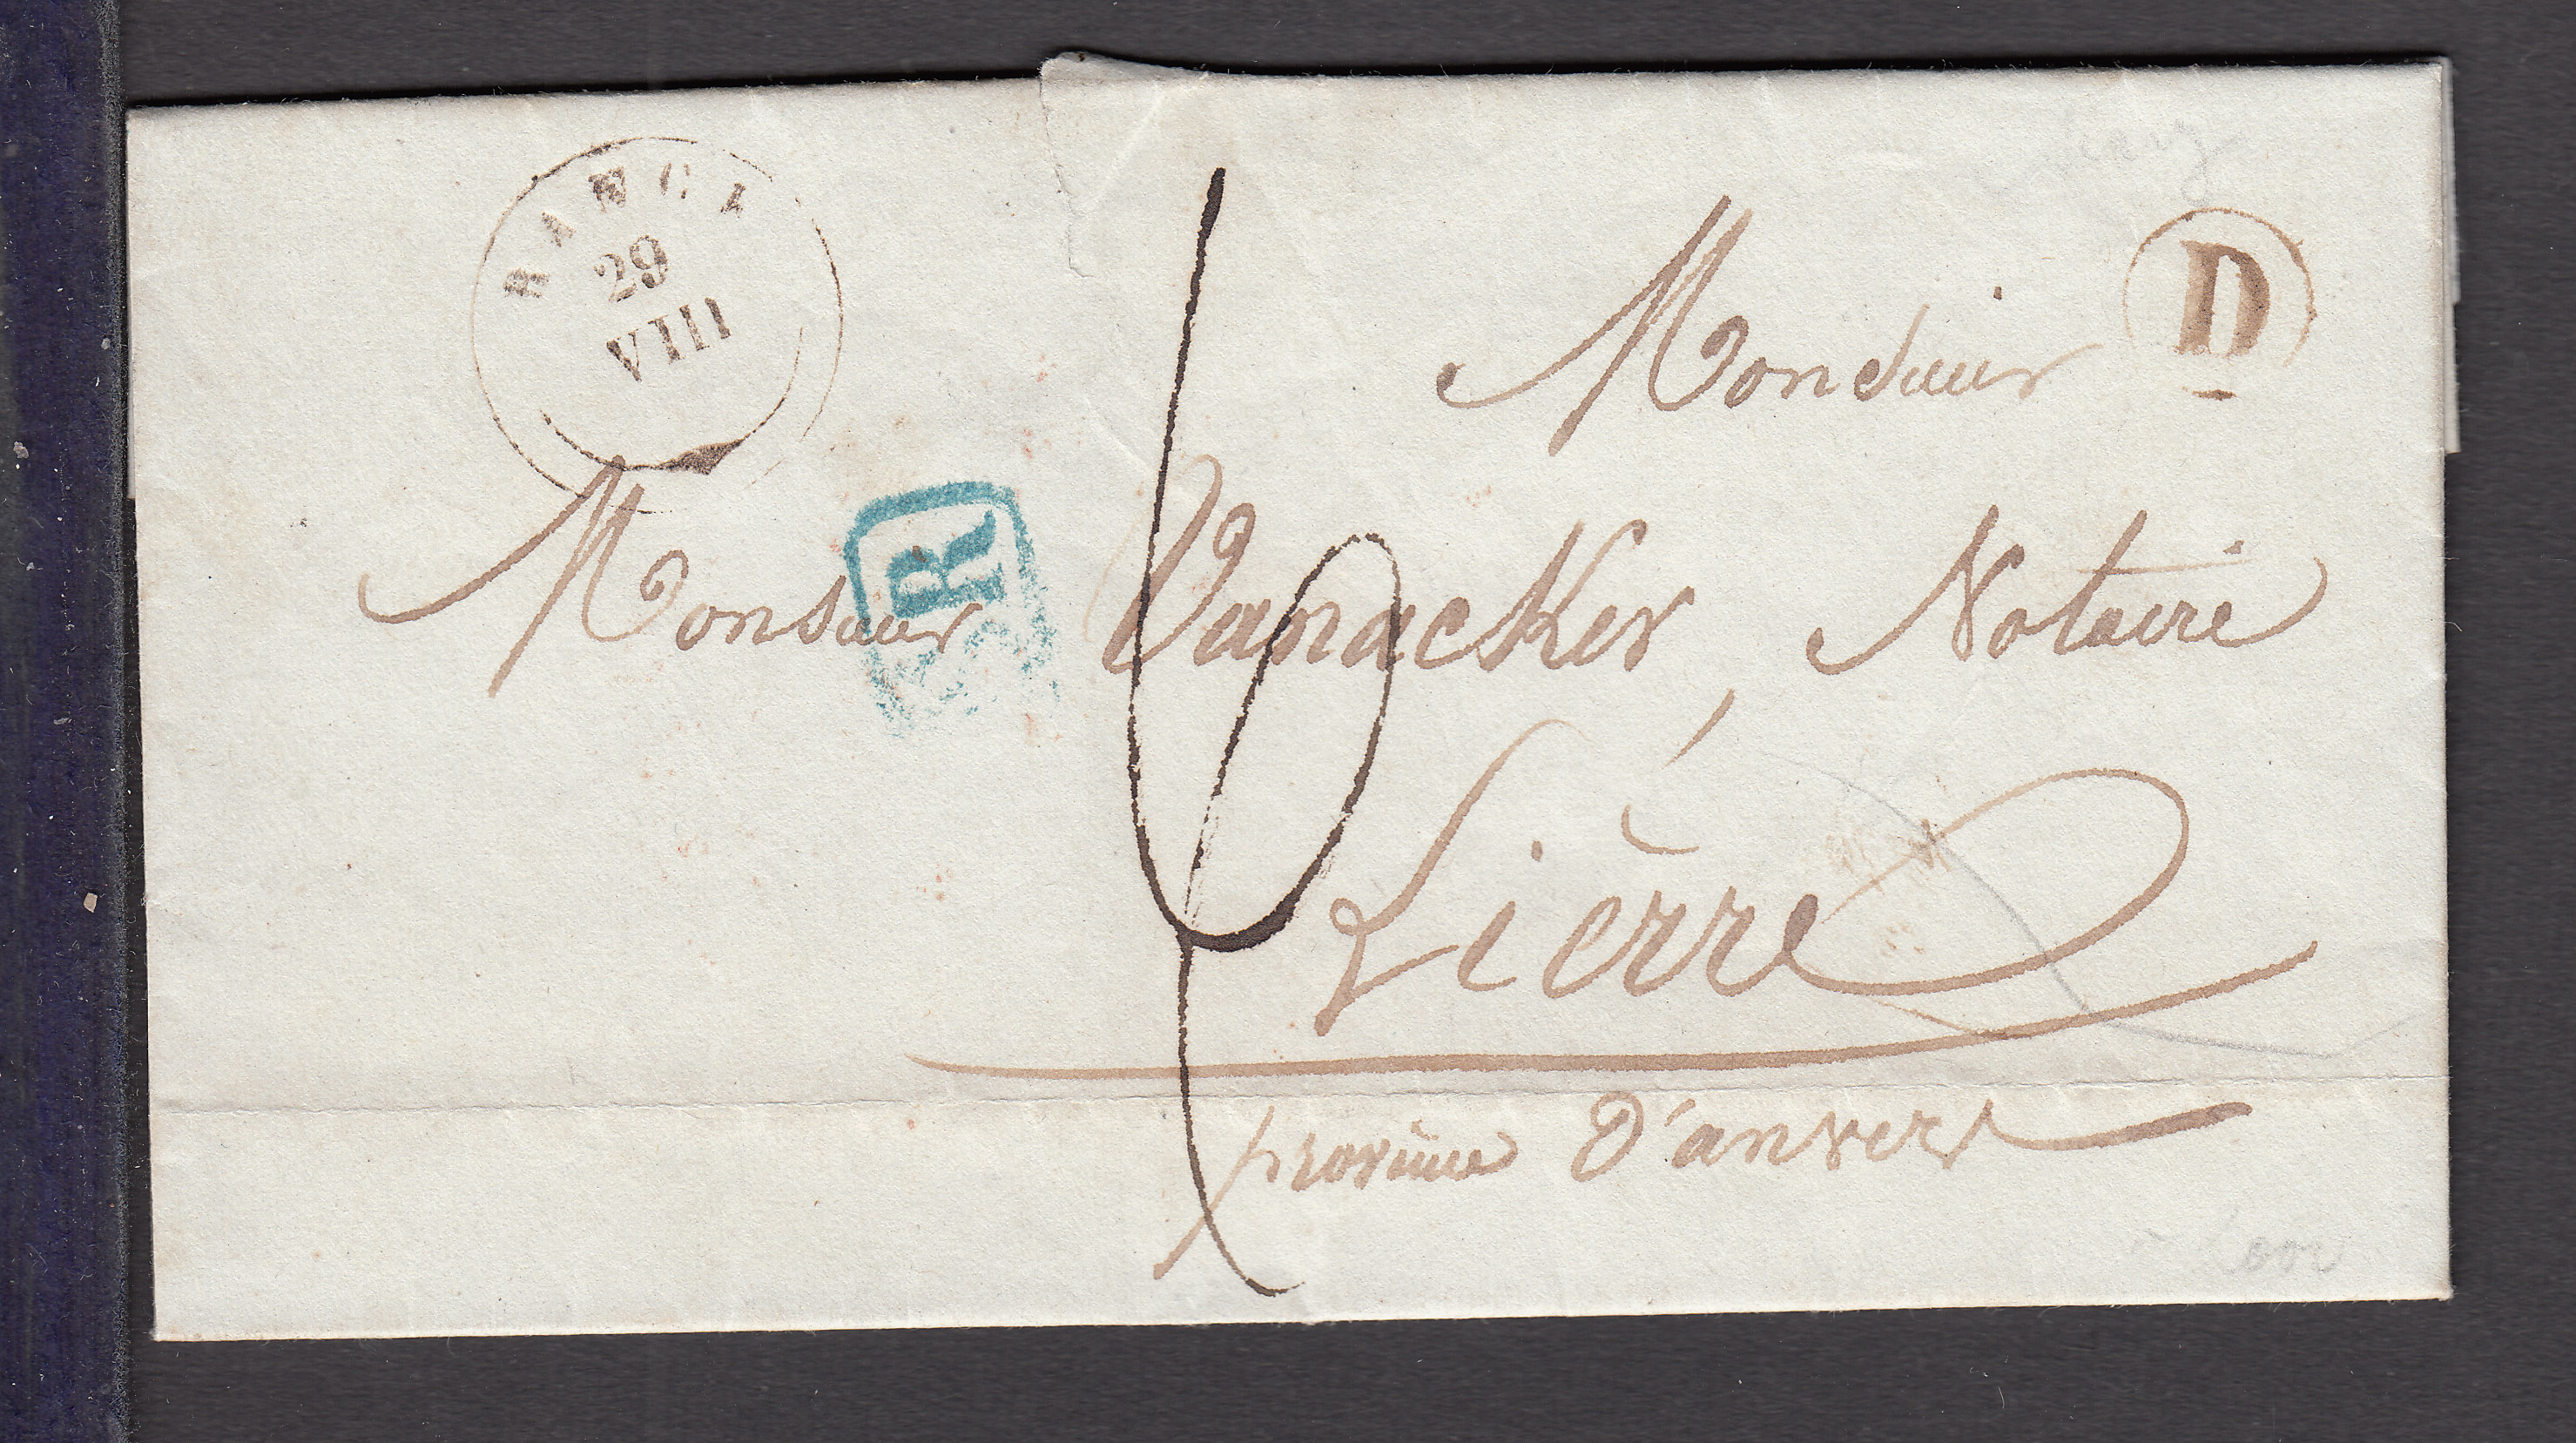 RANCE
29
VIII
D
Monsieur
SR
6
Monsieur Vanacker, Notaire
Lièrre
province D'anvers